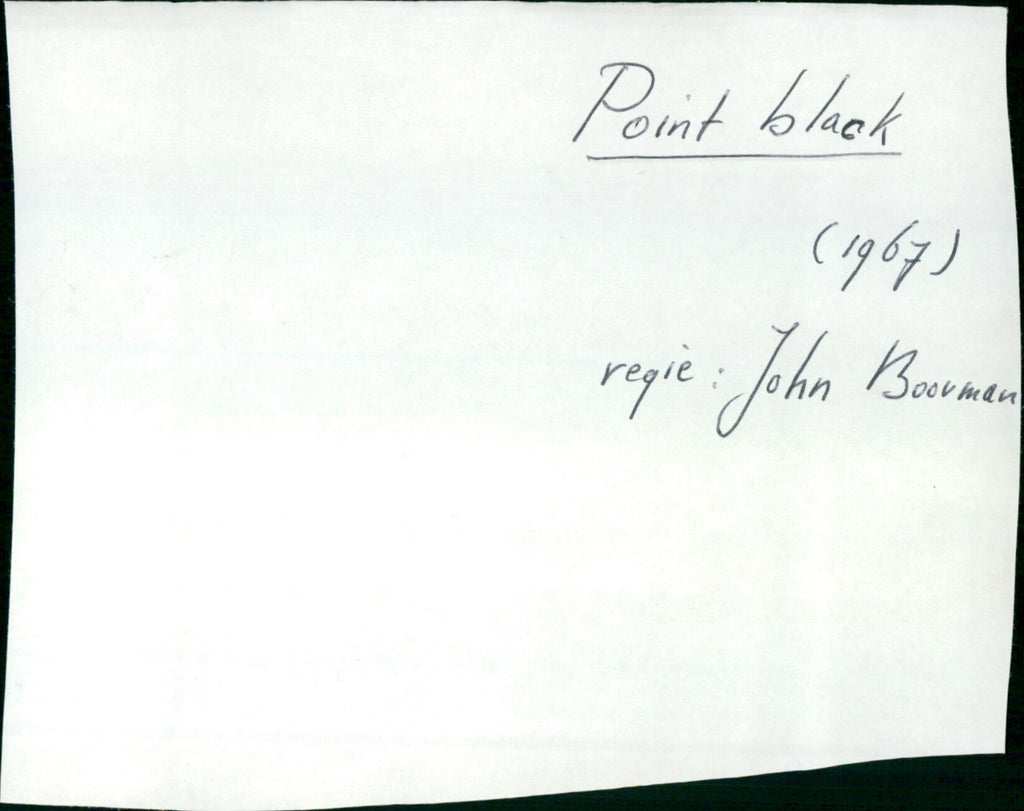 Point black
(1967)
regie: John Boorman